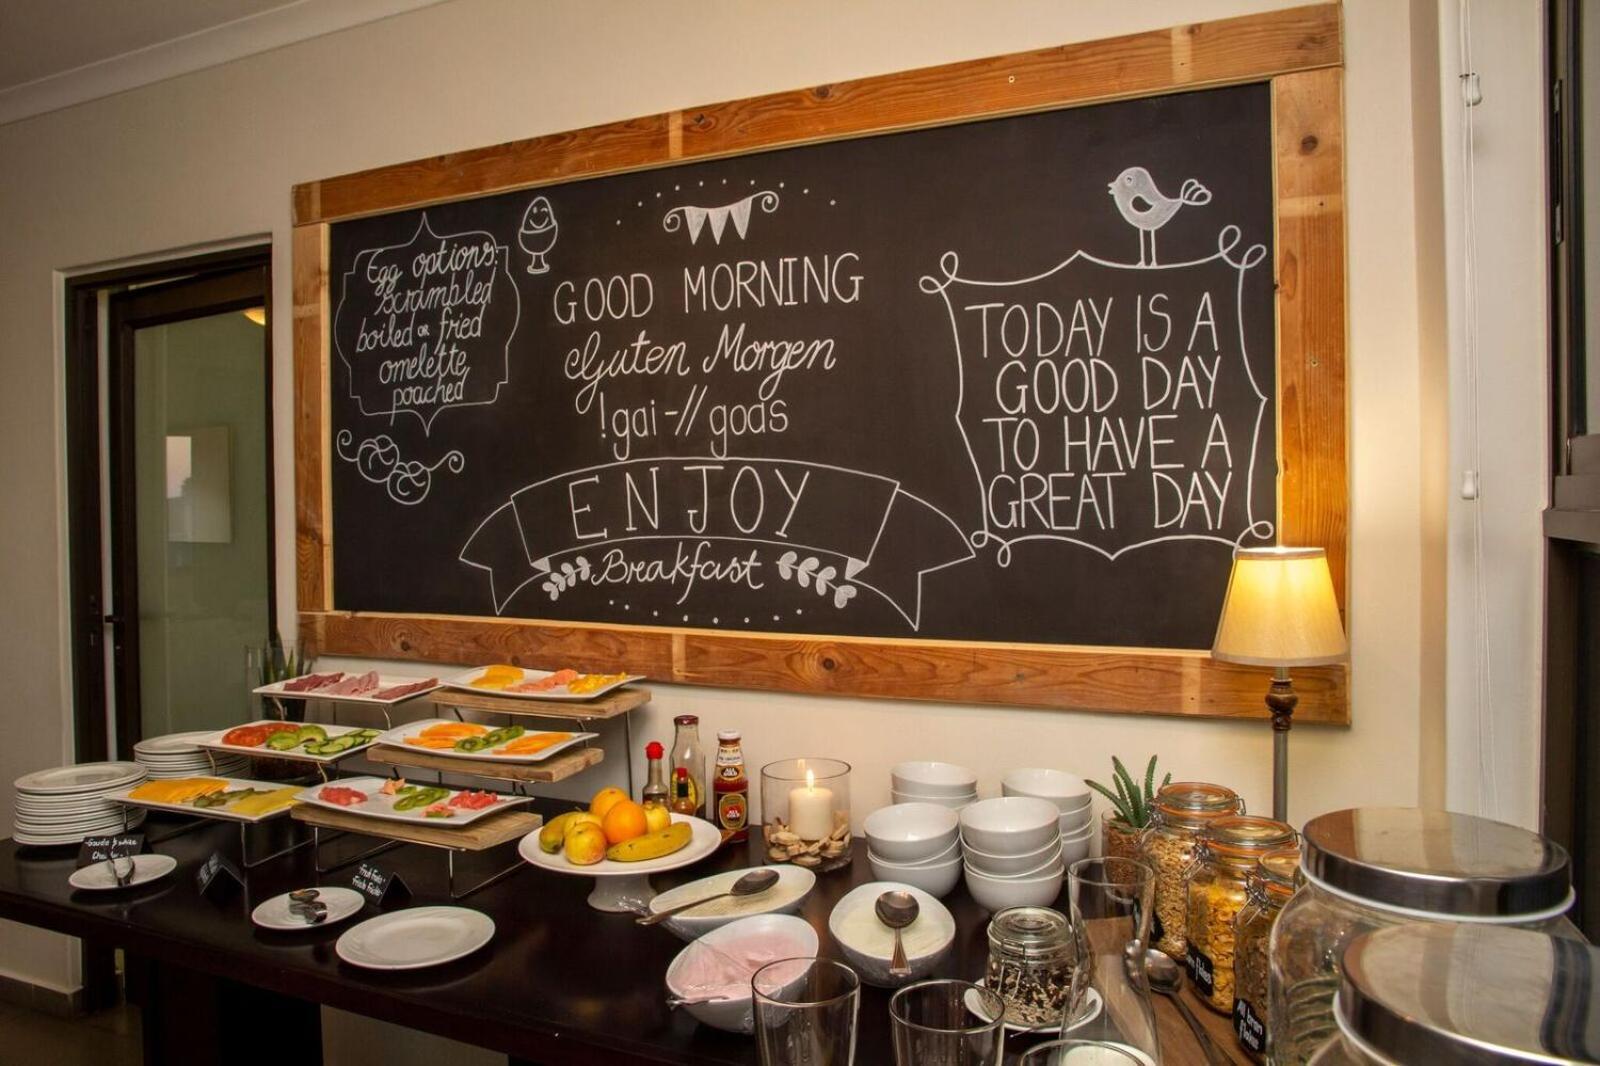 Egg options:
scrambled
boiled OR fried
omelette
poached
GOOD MORNING
Guten Morgen
!gai-//goas
ENJOY
Breakfast
TODAY IS A
GOOD DAY
TO HAVE A
GREAT DAY
Gouda & white
Fresh Fruits
All bran
flakes
flakes
ALL GOLD